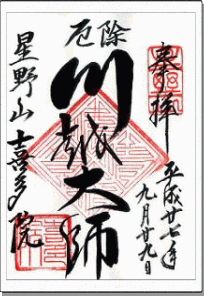 奉拝
平成廿七年
九月廿九日
厄除
川越大師
星野山
喜多院